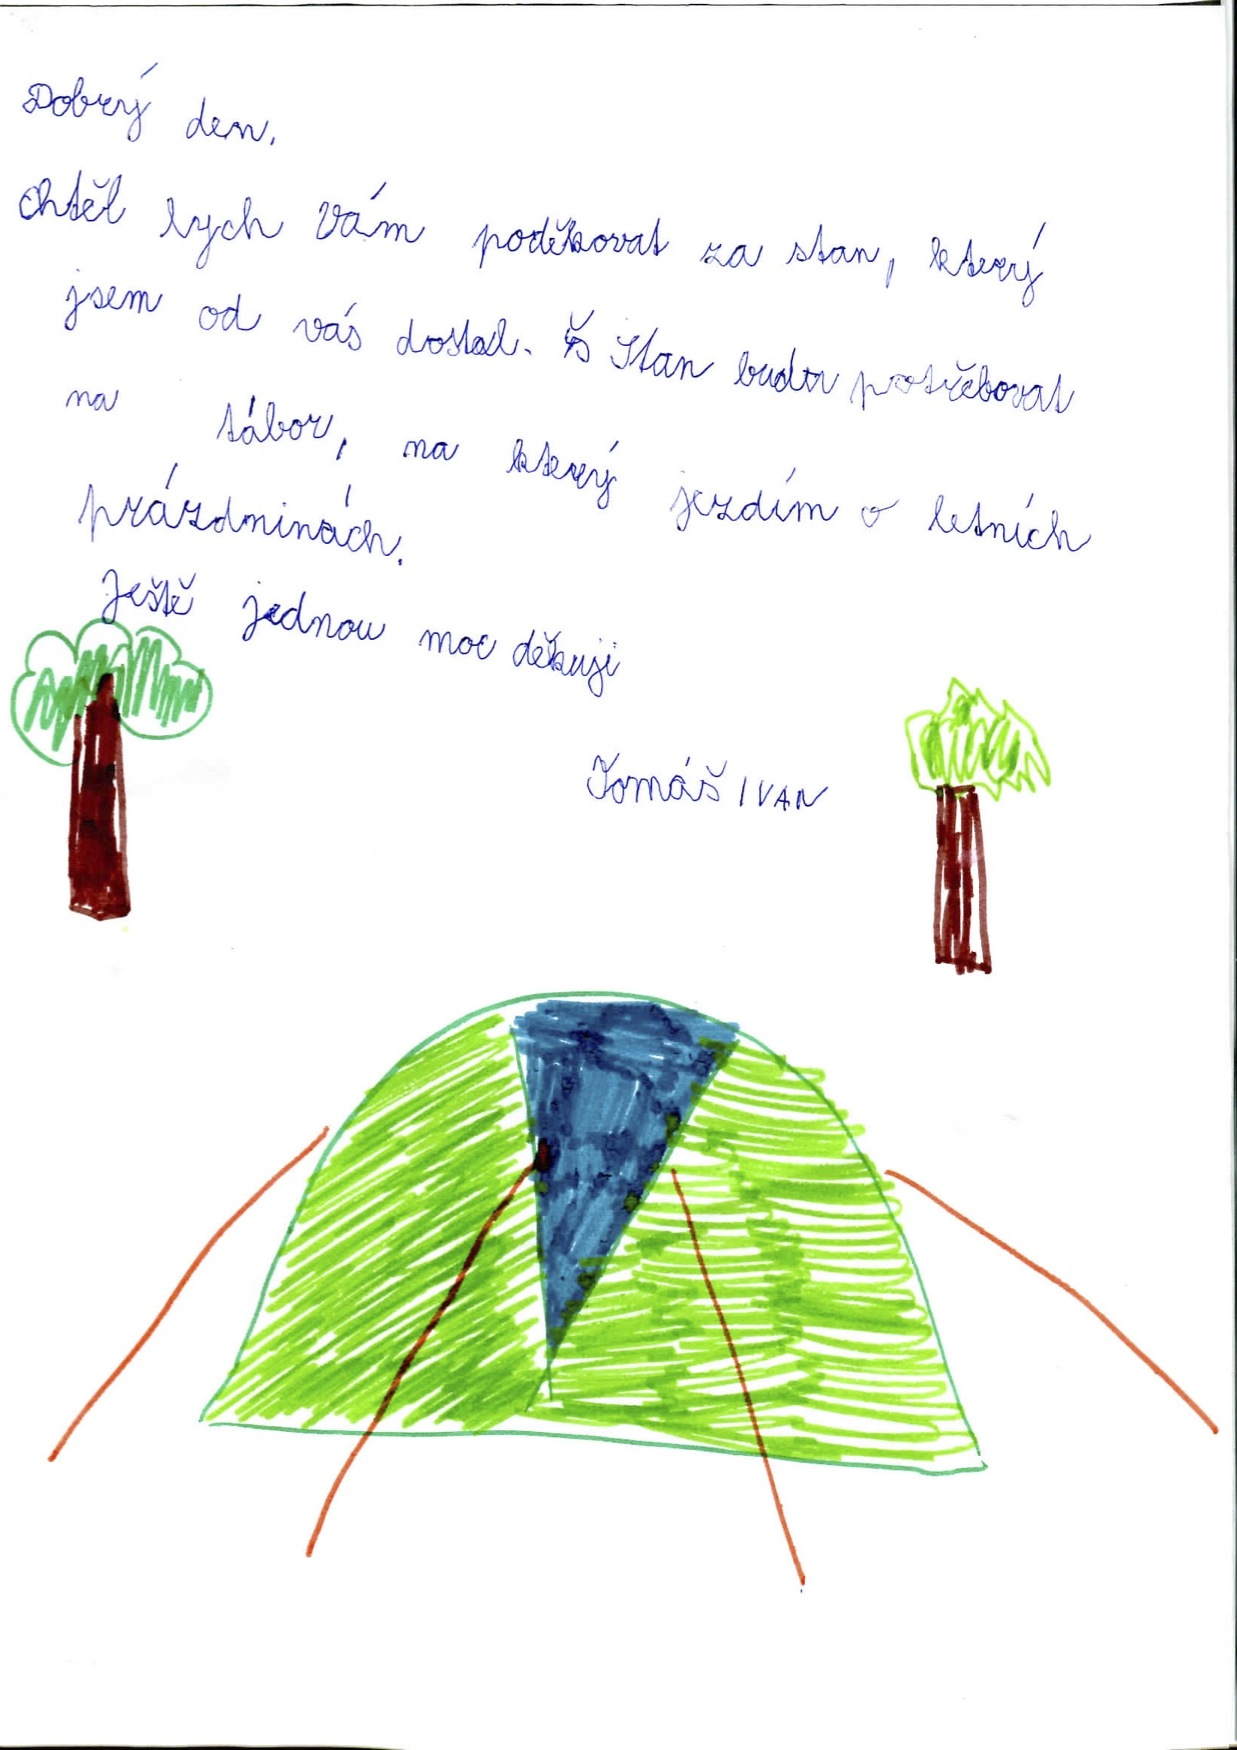 Dobrý den.
chtěl bych Vám poděkovat za stan, který
jsem od vás dostal. Stan budu potřebovat
na tábor, na který jezdím o letních
prázdninách.
Ještě jednou moc děkuji
Tomáš IVAN